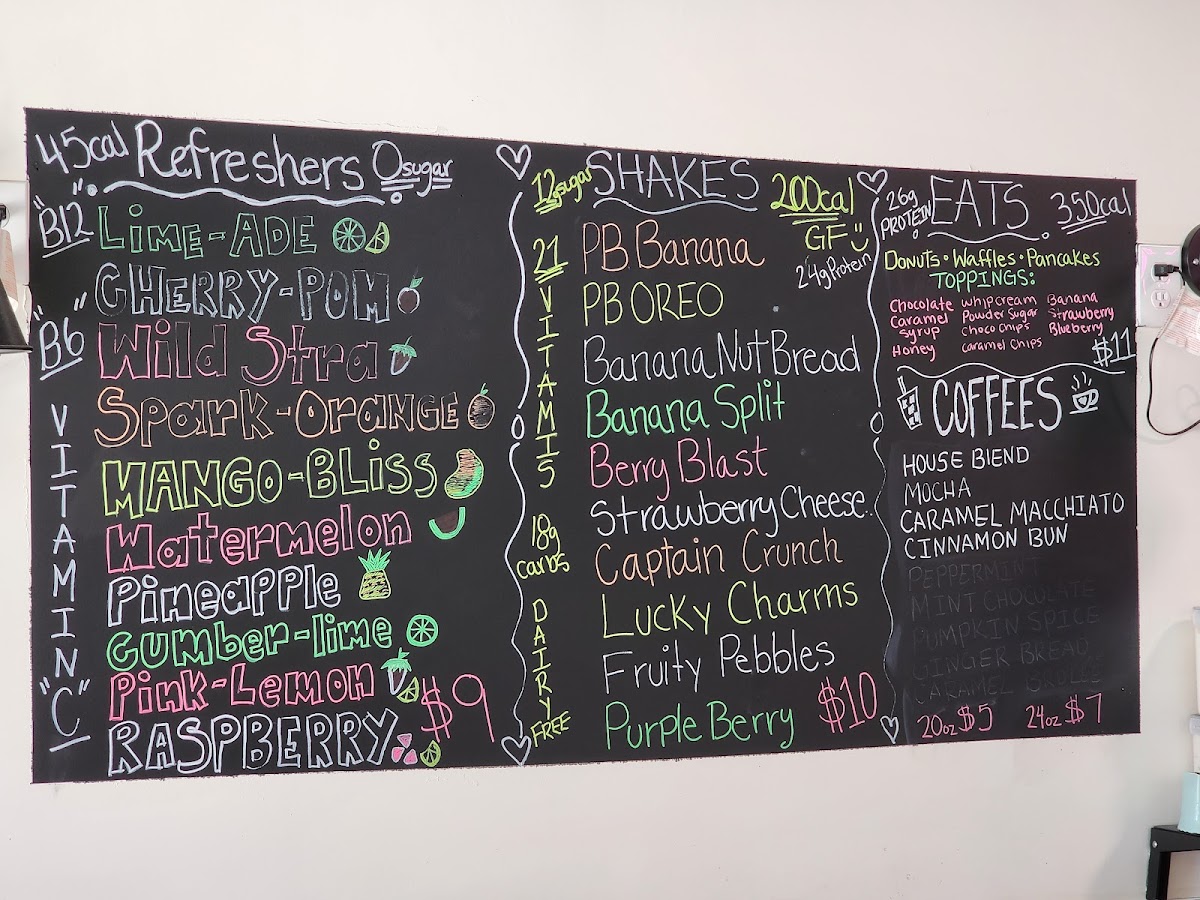 45cal Refreshers 0sugar
"B12"
"B6"
VITAMIN "C"
LIME-ADE
CHERRY-POM
Wild Stra
Spark-ORANGE
MANGO-BLISS
Watermelon
Pineapple
Cumber-lime
Pink-Lemon
RASPBERRY
$9
12sugar SHAKES 200cal
GF
24g Protein
21 VITAMIS
18g carbs
DAIRY FREE
PB Banana
PB OREO
Banana Nut Bread
Banana Split
Berry Blast
Strawberry Cheese..
Captain Crunch
Lucky Charms
Fruity Pebbles
Purple Berry
$10
26g PROTEIN EATS 350cal
DONUTS • WAFFLES • PANCAKES
TOPPINGS:
Chocolate whipcream Banana
Caramel Powder Sugar Strawberry
Syrup Choco Chips Blueberry
Honey Caramel Chips
$11
COFFEES
HOUSE BLEND
MOCHA
CARAMEL MACCHIATO
CINNAMON BUN
PEPPERMINT
MINT CHOCOLATE
PUMPKIN SPICE
GINGER BREAD
CARAMEL
20oz $5 24oz $7